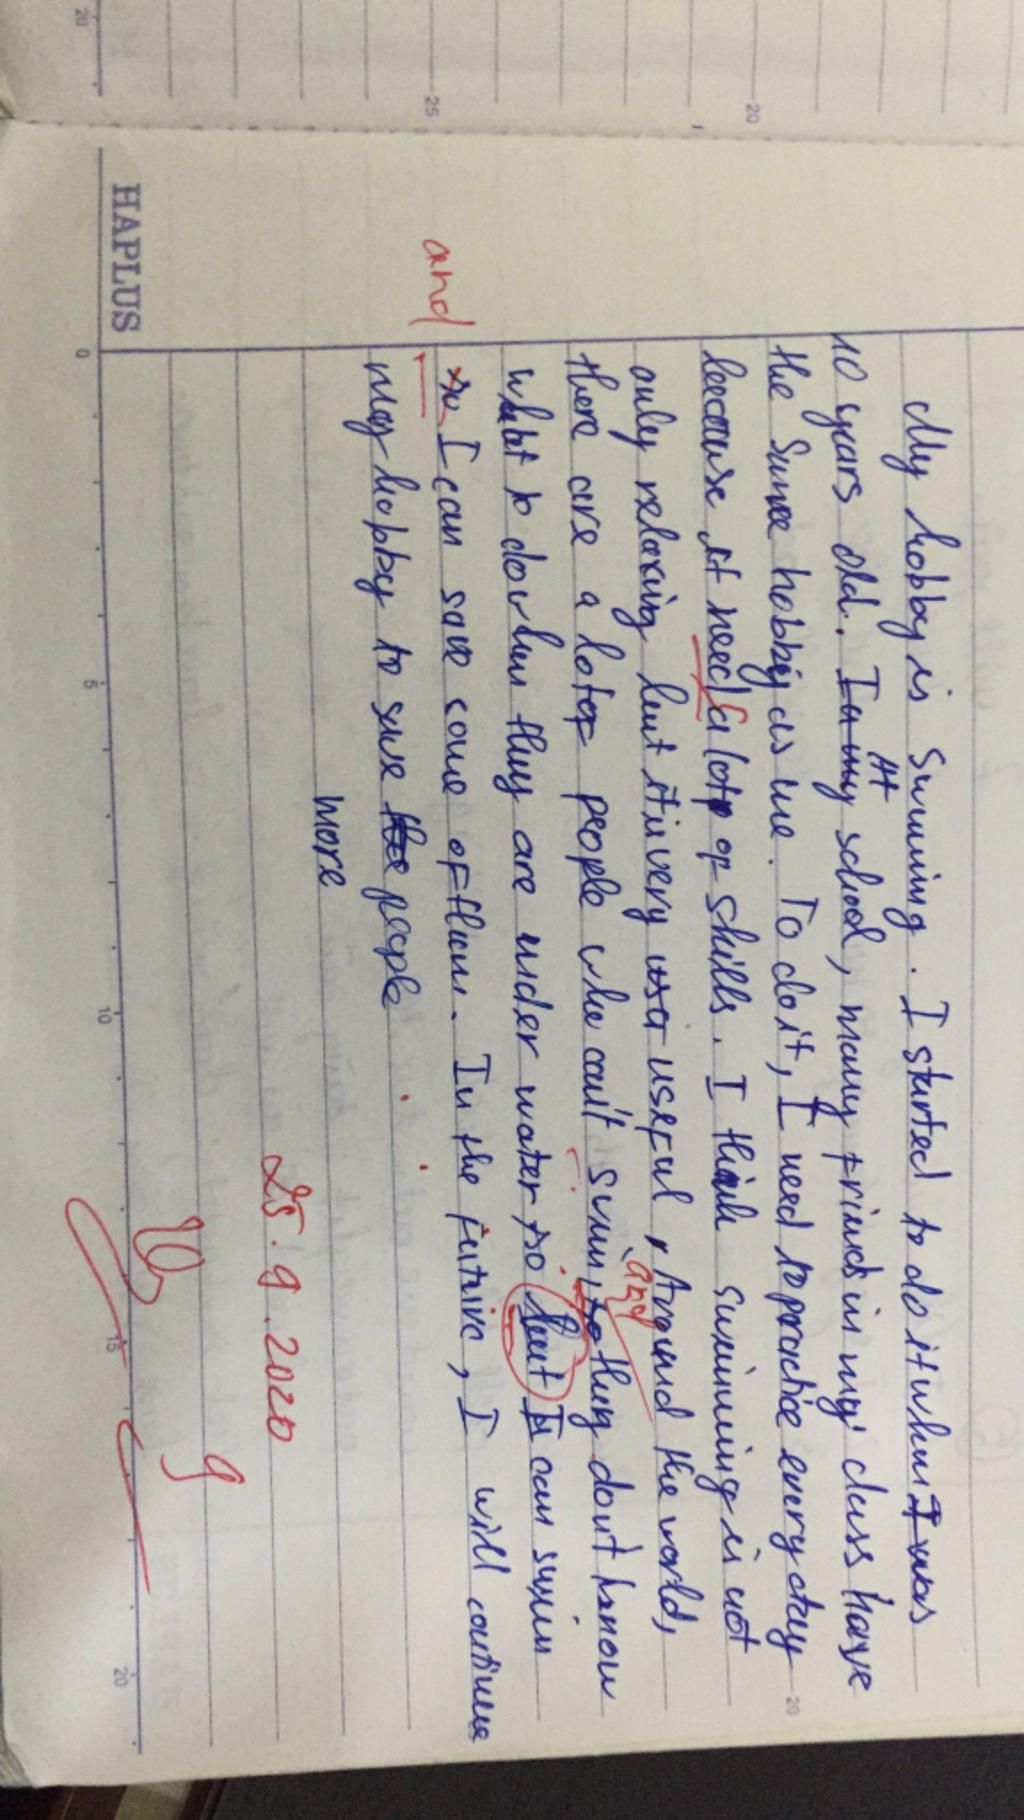 My hobby is swimming. I started to do it when I was
At
10 years old. In my school, many friends in my class have
the same hobby as me. To do it, I need to practice every day
because it need a lot of of skills. I think swimming is not
only relaxing but it is very useful, Around the world,
and
there are a lot of people who can't swim, so they don't know
what to do when they are under water so but I can swim
and
so I can save some of them. In the future, I will continue
my hobby to save the people
more
25.9.2020
9
HAPLUS
0 5 10 15 20
20
25
20